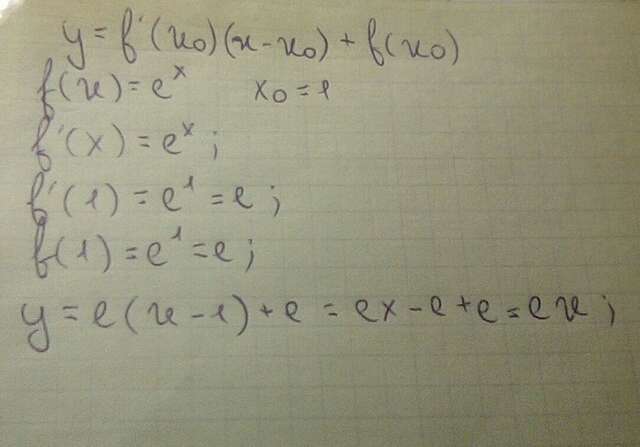 y = f'(x₀)(x-x₀) + f(x₀)
f(x) = eˣ x₀ = 1
f'(x) = eˣ ;
f'(1) = e¹ = e ;
f(1) = e¹ = e ;
y = e(x - 1) + e = ex - e + e = ex ;